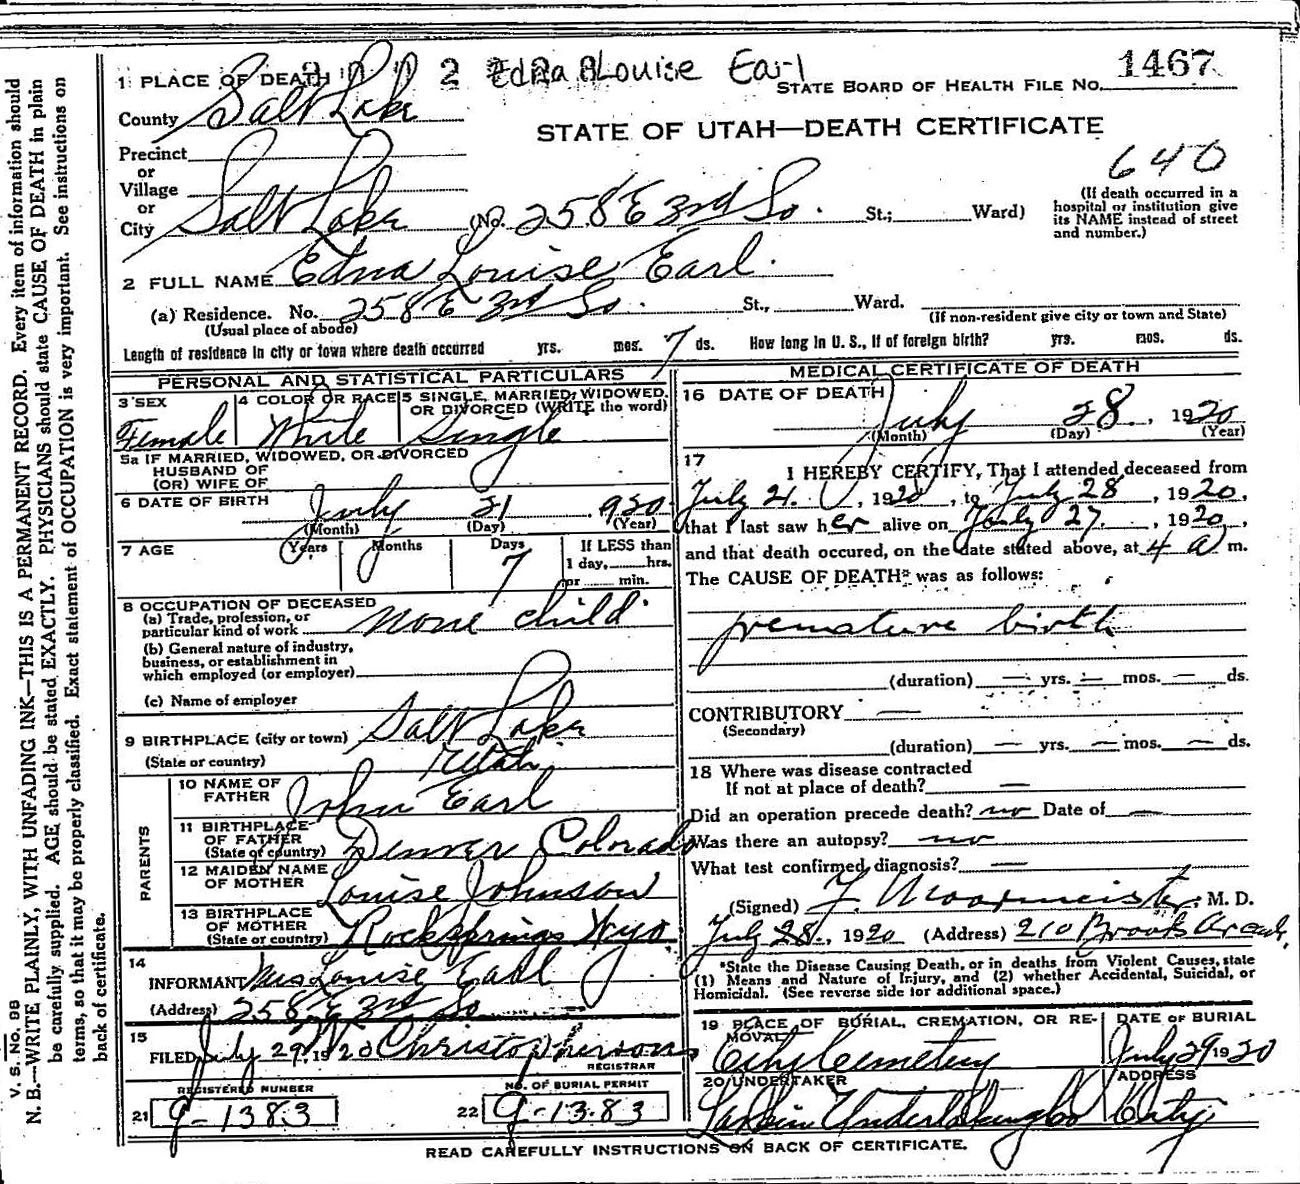 1 PLACE OF DEATH 2 Edna Louise Earl
STATE BOARD OF HEALTH FILE NO. 1467
County Salt Lake
STATE OF UTAH—DEATH CERTIFICATE
Precinct
or
Village
or
City Salt Lake (No. 258 E 3rd So. St.; Ward)
640
(If death occurred in a
hospital or institution give
its NAME instead of street
and number.)
2 FULL NAME Edna Louise Earl.
(a) Residence. No. 258 E 3rd So. St., Ward.
(Usual place of abode)
(If non-resident give city or town and State)
Length of residence in city or town where death occurred yrs. mos. 7 ds. How long in U. S., if of foreign birth? yrs. mos. ds.
PERSONAL AND STATISTICAL PARTICULARS
3 SEX
Female
4 COLOR OR RACE
White
5 SINGLE, MARRIED, WIDOWED,
OR DIVORCED (WRITE the word)
Single
5a IF MARRIED, WIDOWED, OR DIVORCED
HUSBAND OF
(OR) WIFE OF
6 DATE OF BIRTH July 21 920
(Month) (Day) (Year)
7 AGE Years Months Days 7
If LESS than
1 day, hrs.
or min.
8 OCCUPATION OF DECEASED
(a) Trade, profession, or
particular kind of work none child
(b) General nature of industry,
business, or establishment in
which employed (or employer)
(c) Name of employer
9 BIRTHPLACE (city or town) Salt Lake
(State or country) Utah
PARENTS
10 NAME OF
FATHER John Earl
11 BIRTHPLACE
OF FATHER
(State or country) Denver Colorado
12 MAIDEN NAME
OF MOTHER Louise Johnson
13 BIRTHPLACE
OF MOTHER
(State or country) Rock Springs Wyo
14
INFORMANT Mrs Louise Earl
(Address) 258 E 3rd So
15
FILED July 29, 1920 Christophersons
REGISTRAR
REGISTERED NUMBER
21 9-1383
NO. OF BURIAL PERMIT
22 9-1383
MEDICAL CERTIFICATE OF DEATH
16 DATE OF DEATH
July 28, 1920
(Month) (Day) (Year)
17
I HEREBY CERTIFY, That I attended deceased from
July 21, 1920, to July 28, 1920,
that I last saw her alive on July 27, 1920,
and that death occured, on the date stated above, at 4 a m.
The CAUSE OF DEATH* was as follows:
premature birth
(duration) — yrs. — mos. — ds.
CONTRIBUTORY —
(Secondary)
(duration) — yrs. — mos. — ds.
18 Where was disease contracted
If not at place of death? —
Did an operation precede death? no Date of —
Was there an autopsy? no
What test confirmed diagnosis? —
(Signed) F. Moormeister M. D.
July 28, 1920 (Address) 210 Brooks Arcade,
*State the Disease Causing Death, or in deaths from Violent Causes, state
(1) Means and Nature of Injury, and (2) whether Accidental, Suicidal, or
Homicidal. (See reverse side for additional space.)
19 PLACE OF BURIAL, CREMATION, OR RE-
MOVAL
City Cemetery
DATE OF BURIAL
July 29 1920
20 UNDERTAKER
Larkin Undertaking Co
ADDRESS
City
READ CAREFULLY INSTRUCTIONS ON BACK OF CERTIFICATE.
V. S. NO. 98
N. B.—WRITE PLAINLY, WITH UNFADING INK—THIS IS A PERMANENT RECORD. Every item of information should
be carefully supplied. AGE should be stated EXACTLY. PHYSICIANS should state CAUSE OF DEATH in plain
terms, so that it may be properly classified. Exact statement of OCCUPATION is very important. See instructions on
back of certificate.